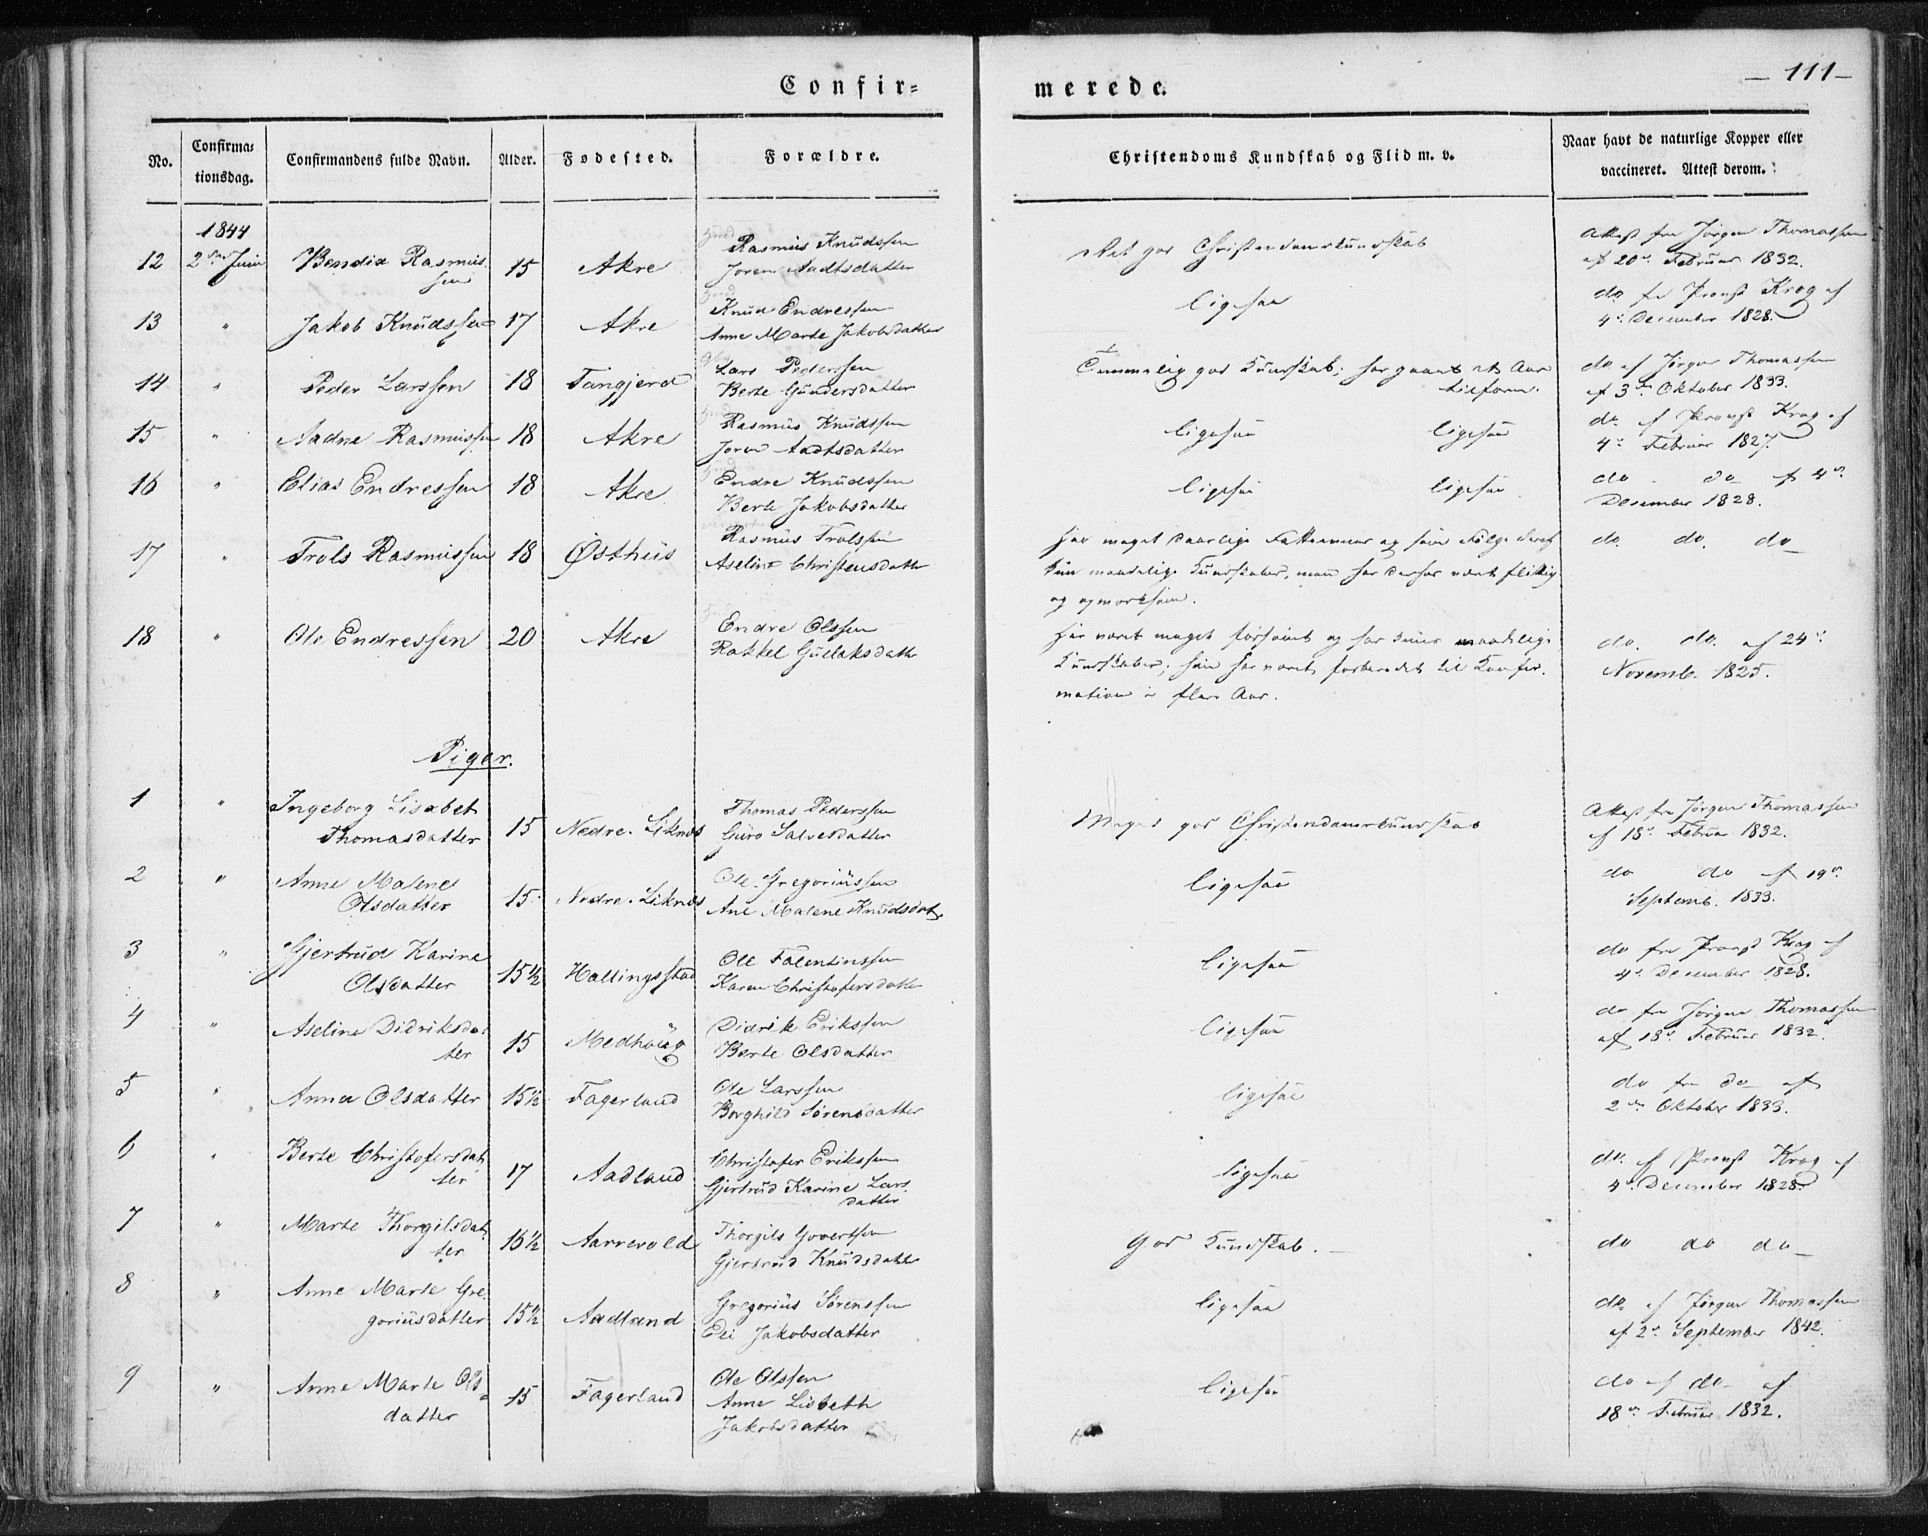 Confir-
merede.
— 111 —
No.
Confirma-
tionsdag.
Confirmandens fulde Navn.
Alder.
Fødested.
Forældre.
Christendoms Kundskab og Flid m. v.
Naar havt de naturlige Kopper eller
vaccineret. Attest derom.
1844
12 2den Juni Bendix Rasmus
sen 15 Akre
Rasmus Knudssen
Joren Aadtsdatter
Ret god Christendomskundskab
Attest fra Jørgen Thomassen
af 20de Februar 1832.
13 " Jakob Knudssen 17 Akre
Knud Endressen
Anne Marte Jakobsdatter
ligesaa
do fra Provst Krog af
4de December 1828.
14 " Peder Larssen 18 Tangjerd
Lars Pederssen
Berte Gundersdatter
Temmelig god Kundskab; har gaaet et Aar
tilforn.
do af Jørgen Thomassen
af 3die Oktober 1833.
15 " Aadne Rasmussen 18 Akre
Rasmus Knudssen
Joren Aadtsdatter
ligesaa ligesaa
do af Provst Krog af
4de Februar 1827.
16 " Elias Endressen 18 Akre
Endre Knudssen
Berte Jakobsdatter
ligesaa ligesaa
do do af 4de
December 1828.
17 " Trols Rasmussen 18 Østhus
Rasmus Trolssen
Aseline Christensdatter
Har meget daarlige Fatteevner og som Følge deraf
kun maadelige Kundskaber, men har derfor været flittig
og opmærksom.
do. do. do
18 " Ole Endressen 20 Akre
Endre Olssen
Rakkel Gulaksdatter
Har været meget forsømt og har kun maadelige
Kundskaber; han har været forberedet til Konfir-
mation i flere Aar.
do. do. af 24de
Novemb. 1825.
Piger.
1 " Ingeborg Lisabet
Thomasdatter 15 Nedre-Liknes
Thomas Pederssen
Guro Salvesdatter
Meget god Christendomskundskab
Attest fra Jørgen Thomassen
af 18de Februar 1832.
2 " Anne Malene
Olsdatter 15 Nedre-Liknes
Ole Gregoriussen
Ane Malene Knudsdat.
ligesaa
do do af 19de
Septemb. 1833.
3 " Gjertrud Karine
Olsdatter 15½ Hallingsstad
Ole Falentinssen
Karen Christofersdatter
ligesaa
do fra Provst Krog af
4de December 1828.
4 " Aseline Didriksdat
ter 15 Medhoug
Didrik Erikssen
Berte Olsdatter
ligesaa
do fra Jørgen Thomassen
af 18de Februar 1832.
5 " Anna Olsdatter 15½ Fagerland
Ole Larssen
Borghild Sørensdatter
ligesaa
do fra do af
2den Oktober 1833.
6 " Berte Christofersdat
ter 17 Aadland
Christofer Erikssen
Gjertrud Karine Lars
datter
ligesaa
do. af Provst Krog af
4de December 1828.
7 " Marte Thorgilsdat
ter 16½ Aarrevold
Thorgils Govertsen
Gjertrud Knudsdatter
God Kundskab.
do do do
8 " Anne Marte Gre
goriusdatter 15½ Aadland
Gregorius Sørenssen
Eli Jakobsdatter
ligesaa
do. af Jørgen Thomassen
af 2den September 1842.
9 " Anne Marte Ols
datter 15 Fagerland
Ole Olssen
Anne Lisbeth
Jakobsdatter
ligesaa
do af do af
18de Februar 1832.